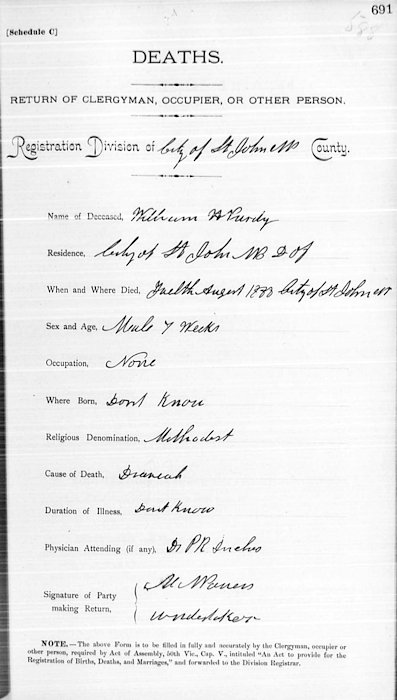 691
[Schedule C]
DEATHS.
RETURN OF CLERGYMAN, OCCUPIER, OR OTHER PERSON.
Registration Division of City of St John NB County.
Name of Deceased, William H Purdy
Residence, City of St John NB D of
When and Where Died, Twelth August 1888 City of St John NB
Sex and Age, Male 7 Weeks
Occupation, None
Where Born, Dont Know
Religious Denomination, Methodest
Cause of Death,
Duration of Illness, Dont Know
Physician Attending (if any), Dr P R Inches
Signature of Party
making Return, { N Powers
undertaker
NOTE.—The above Form is to be filled in fully and accurately by the Clergyman, occupier or
other person, required by Act of Assembly, 50th Vic., Cap. V., intituled "An Act to provide for the
Registration of Births, Deaths, and Marriages," and forwarded to the Division Registrar.